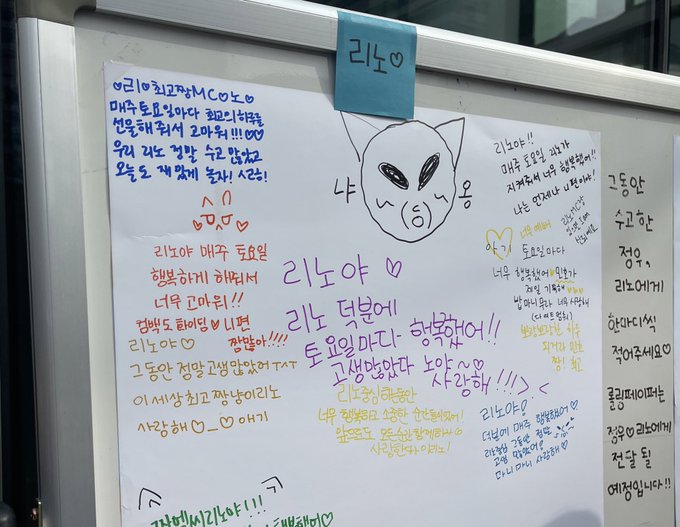 리노♡
♡리♡최고짱MC♡노♡
매주 토요일마다 최고의 하루를
선물해 줘서 고마워!!!♡♡
우리 리노 정말 수고 많았고
오늘도 재밌게 놀자! 사랑해!
리노야 매주 토요일
행복하게 해줘서
너무 고마워!!
컴백도 화이팅♡ 니편
짱많아!!!!
리노야♡
그동안 정말 고생 많았어 ㅜㅅㅜ
이 세상 최고 짱냥이 리노
사랑해♡_♡ 애기
냐 옹
리노야 ♡
리노 덕분에
토요일마다 행복했어!!
고생많았다 노야~♡
사랑해!!!>.<
너무 행복하고 소중한 순간들이었어!
앞으로도 모든순간 함께하자♡
사랑한다 이리노!
리노야!!
매주 토요일 리노가
지켜줘서 너무 행복했어!!
나는 언제나 니편이야!
너무 예뻐
아기 토요일마다
너무 행복했어 민호가
제일 기특해
리노야♡
덕분에 매주 행복했어♡
그동안 정말
고생 많았어!
마니마니 사랑해♡
그동안
수고한
정우,
리노에게
한마디씩
적어주세요♡
롤링페이퍼는
정우♡리노에게
전달 될
예정입니다!!